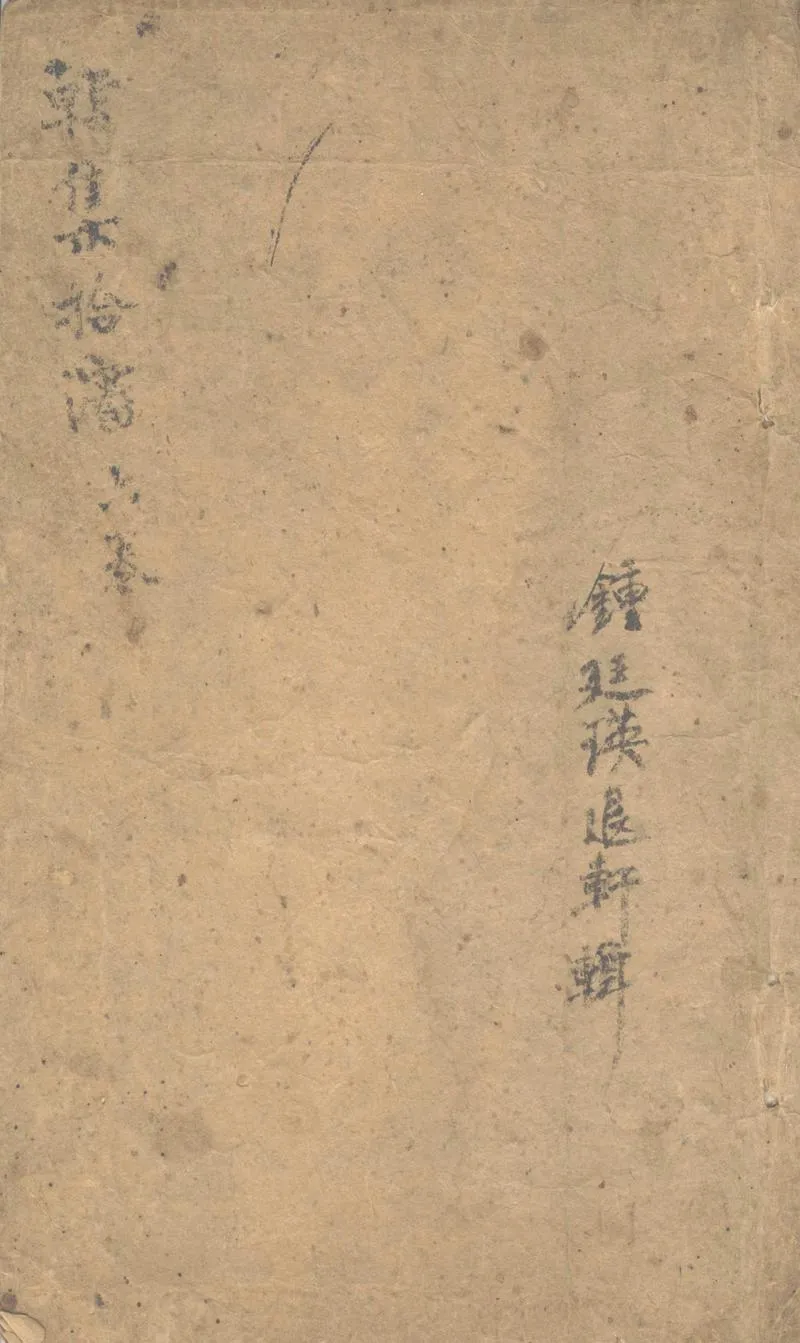 鍾廷瑛退軒輯
韓集拾瀋六卷